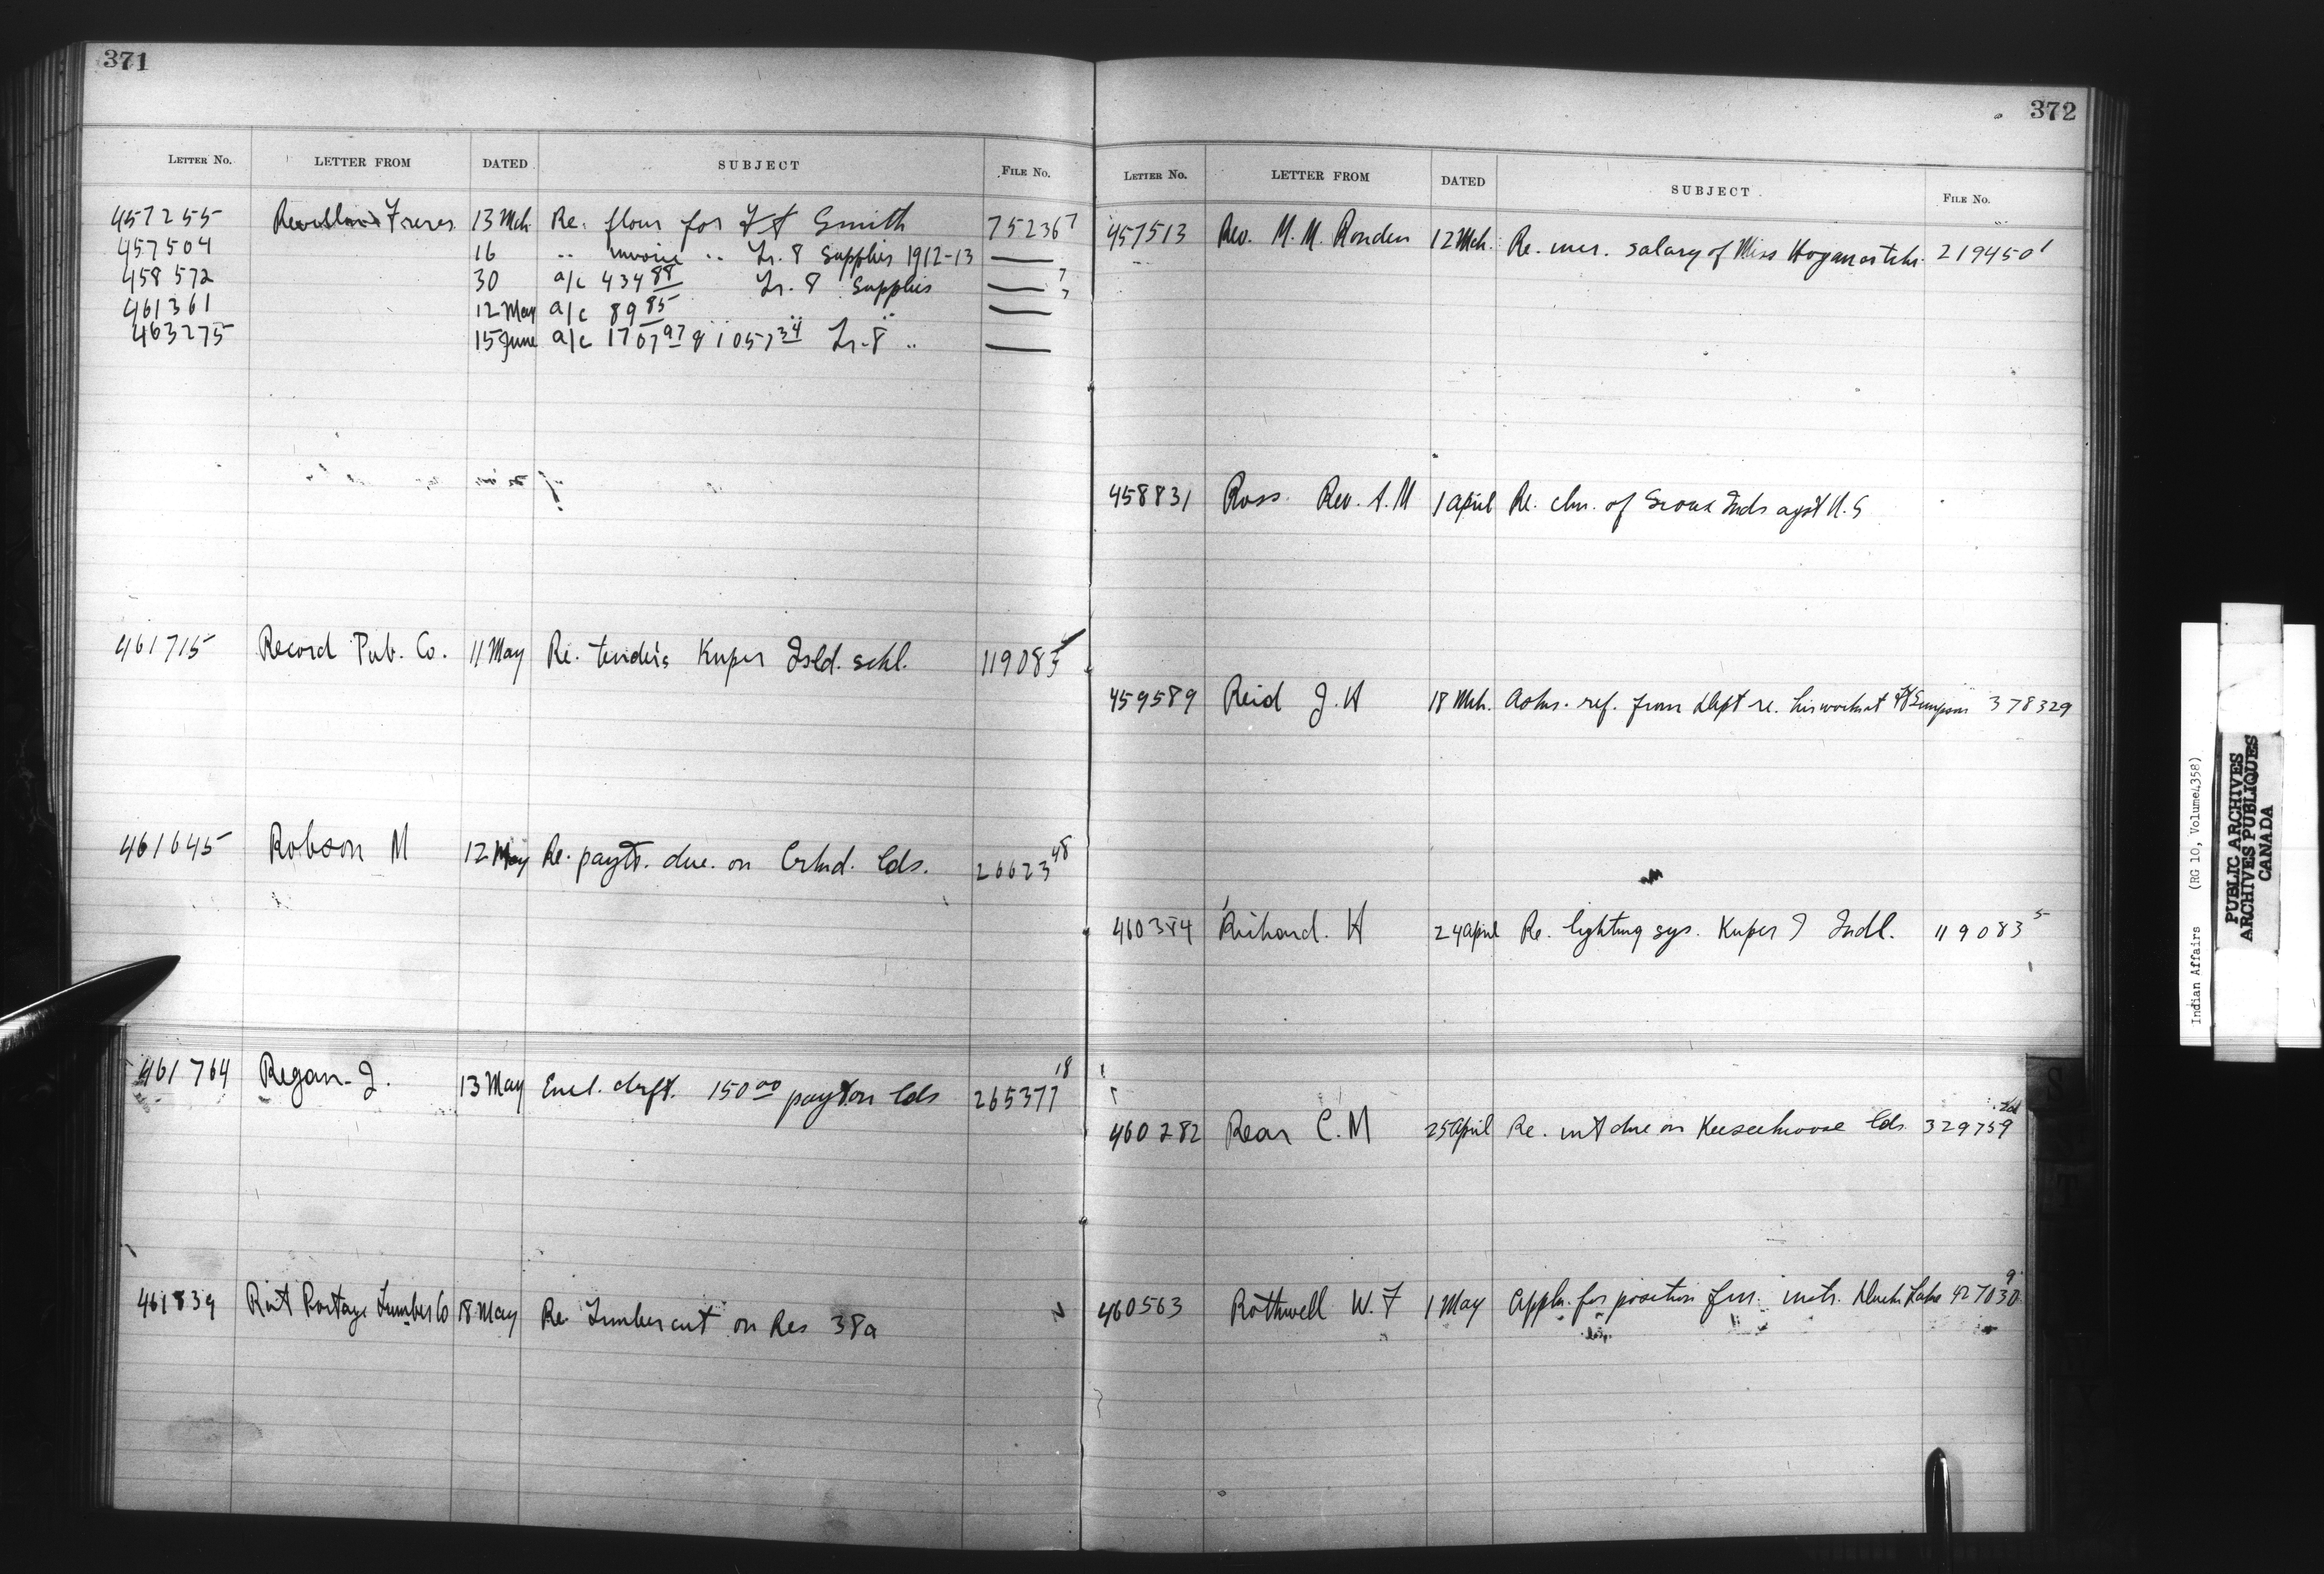 371
LETTER No. LETTER FROM DATED SUBJECT FILE No.
457255 Revillon Freres 13 Mch. Re. flour for Ft Smith 75236 7
457504 16 " invoice " Tr. 8 Supplies 1912-13 —
458572 30 a/c 434 88 Tr. 8 Supplies —
461361 12 May a/c 89 85 " " —
463275 15 June a/c 1707 97 & 1057 34 Tr. 8 " —
461715 Record Pub. Co. 11 May Re. tenders Kuper Isld. schl. 119083 5
461645 Robson M 12 May Re. payts. due on Crkd. lds. 26623 48
461764 Regan J. 13 May Encl. drft. 150 00 payt on lds 265377 18
461839 Rat Portage Lumber Co 18 May Re. Timber cut on Res 38a
372
LETTER No. LETTER FROM DATED SUBJECT FILE No.
457513 Rev. M. M. Ronden 12 Mch. Re. incr. salary of Miss Hogan as tchr. 219450 1
458831 Ross Rev. A. M 1 April Re. clm. of Sioux Inds agst U.S
459589 Reid J. H 18 Mch. Asks. ref. from Dept re. his work at Ft Simpson 378329
460384 Richard. H 24 April Re. lighting sys. Kuper I Indl. 119083 5
460282 Rear C. M 25 April Re. int due on Keeseekoose lds. 329759
460563 Rothwell W. F 1 May Appln. for position frm. instr. Duck Lake 427030 9
Indian Affairs (RG 10, Volume 4358)
PUBLIC ARCHIVES
ARCHIVES PUBLIQUES
CANADA
S
T